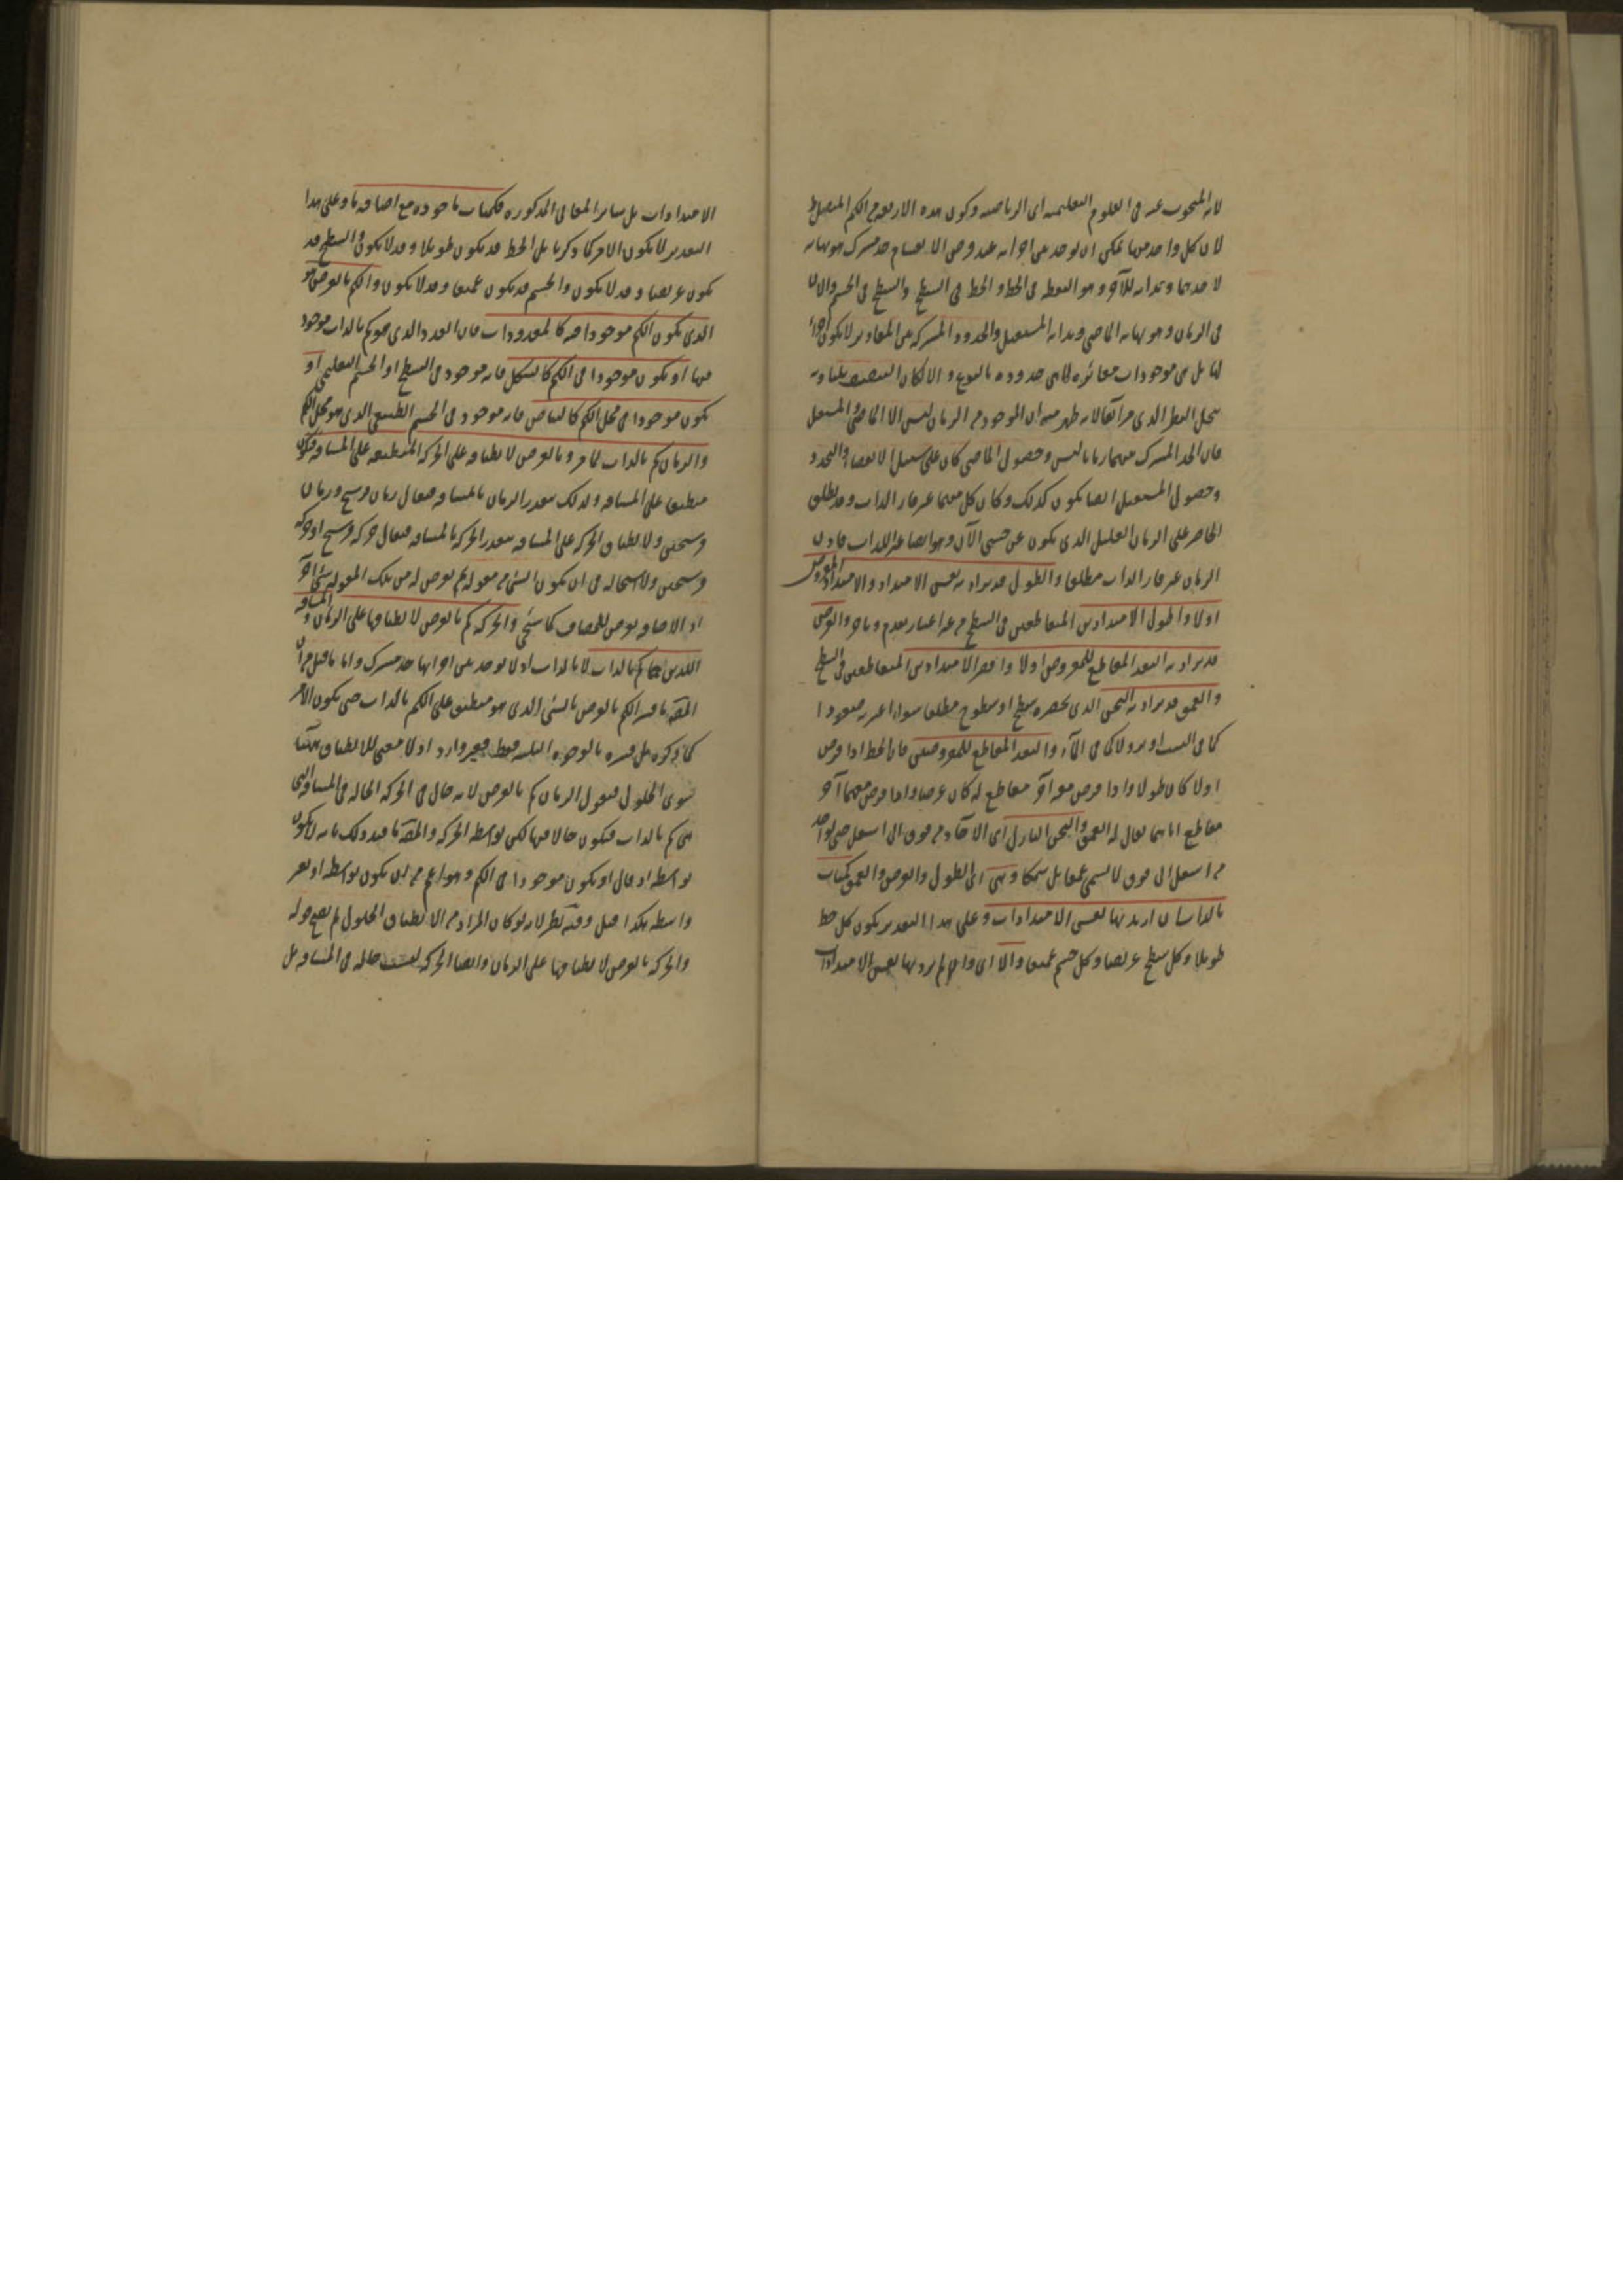 لانه المبحوث عنه فى العلوم التعليمية اى الرياضية وكون هذه الاربعة من الكم المتصل
لان كل واحد منها يمكن ان يوجد بين اجزائه عند فرض الانقسام حد مشترك هو نهاية
لاحدهما وبداية للآخر وهو النقطة فى الخط والخط فى السطح والسطح فى الجسم والان
فى الزمان وهو نهاية الماضى وبداية المستقبل والحدود المشتركة بين المقادير لا يكون اجزاء
لها بل هى موجودات مغائرة لما هى حدوده بالنوع والا لكان التنصيف
الذى مر آنفا لانه ظهر منه ان الموجود من الزمان ليس الا الماضى والمستقبل
فان الحد المشترك منهما زمانا ليس وحصول الماضى كان على سبيل الانقضاء والتجدد
وحصول المستقبل ايضا يكون كذلك وكان كل منهما غير قار الذات وقد يطلق
الحاضر على الزمان القليل الذى يكون عن جنبى الآن وهو ايضا غير قار الذات فاذن
الزمان غير قار الذات مطلقا والطول قد يراد به نفس الامتداد والامتداد المفروض
اولا واطول الامتدادين المتقاطعين فى السطح من غير اعتبار تقدم وتاخر والعرض
قد يراد به البعد المقاطع للمفروض اولا واقصر الامتدادين المتقاطعين فى السطح
والعمق قد يراد به الثخن الذى يحصره سطح او سطوح مطلقا سواء اعتبر صعودا
كما فى البيت او نزولا كما فى الماء والبعد المقاطع للمفروضين فان الخط اذا فرض
اولا كان طولا واذا فرض معه آخر مقاطع له كان عرضا واذا فرض معهما آخر
مقاطع اياهما يقال له العمق والثخن النازل اى الآخذ من فوق الى اسفل حتى لو اخذ
من اسفل الى فوق لا يسمى عمقا بل سمكا وهى اى الطول والعرض والعمق كميات
بالذات ان اريد بها نفس الامتدادات وعلى هذا التقدير يكون كل خط
طويلا وكل سطح عريضا وكل جسم عميقا والا اى وان لم يرد بها نفس الامتدادات
الامتدادات بل سائر المعانى المذكورة فكميات ماخوذة مع اضافة ما وعلى هذا
التقدير لا يكون الامر كما ذكرنا بل الخط قد يكون طويلا وقد لا يكون والسطح قد
يكون عريضا وقد لا يكون والجسم قد يكون عميقا وقد لا يكون والكم بالعرض هو
الذى يكون الكم موجودا فيه كالمعدودات فان العدد الذى هو كم بالذات موجود
فيها او يكون موجودا فى الكم كالشكل فانه موجود فى السطح او الجسم التعليمى او
يكون موجودا فى محل الكم كالبياض فانه موجود فى الجسم الطبيعى الذى هو محل الكم
والزمان كم بالذات لما مر وبالعرض لانطباقه على الحركة المنطبقة على المسافة فيكون
منطبقا على المسافة ولذلك يتقدر الزمان بالمسافة فيقال زمان فرسخ وزمان
فرسخين ولانطباق الحركة على المسافة يتقدر الحركة بالمسافة فيقال حركة فرسخ او حركة
فرسخين ولا استحالة فى ان يكون الشئ من مقولة ثم يعرض له من تلك المقولة شئ آخر
اذ الاضافة يعرض للمضاف كما سيجئ والحركة كم بالعرض لانطباقها على الزمان والمسافة
اللذين هما كم بالذات لا بالذات اذ لا يوجد بين اجزائها حد مشترك واما ما قيل من ان
المص ما فسر الكم بالعرض بالشئ الذى هو منطبق على الكم بالذات حتى يكون الامر
كما ذكره بل فسره بالوجوه الثلثة فقط فغير وارد اذ لا معنى للانطباق ههنا
سوى الحلول فنقول الزمان كم بالعرض لانه حال فى الحركة الحالة فى المسافة التى
هى كم بالذات فيكون حالا فيها لكن بواسطة الحركة والمص ما قيد ذلك بانه لا يكون
بواسطة اذ قال او يكون موجودا فى الكم وهو اعم من ان يكون بواسطة او بغير
واسطة هكذا قيل وفيه نظر لانه لو كان المراد من الانطباق الحلول لم يصح قوله
والحركة بالعرض لانطباقها على الزمان وايضا الحركة ليست حالة فى المسافة بل